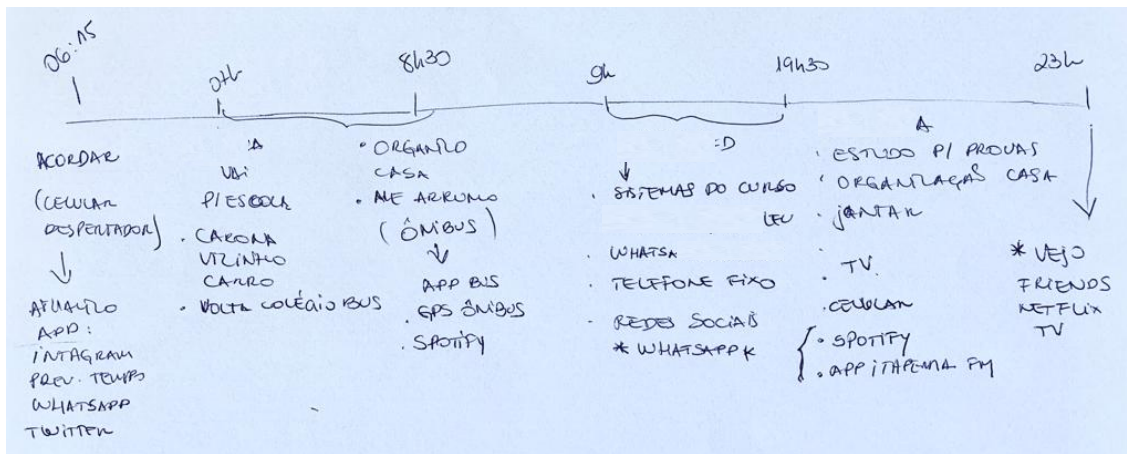 06:15
07h
8h30
9h
19h30
23h
ACORDAR
(CELULAR
DESPERTADOR)
↓
ATUALIZO
APP:
INTAGRAM
PREV. TEMPO
WHATSAPP
TWITTER
:A
VAI
P/ ESCOLA
· CARONA
VIZINHO
CARRO
· VOLTA COLÉGIO BUS
• ORGANIZO
CASA
• ME ARRUMO
(ÔNIBUS)
↓
APP BUS
. GPS ÔNIBUS
. SPOTIFY
:D
↓
. SISTEMAS DO CURSO
. WHATSA
. TELEFONE FIXO
. REDES SOCIAIS
* WHATSAPP *
A
. ESTUDO P/ PROVAS
. ORGANIZAÇÃO CASA
. JANTAR
. TV.
. CELULAR
. SPOTIFY
. APP ITAPEMA FM
↓
* VEJO
FRIENDS
NETFLIX
TV